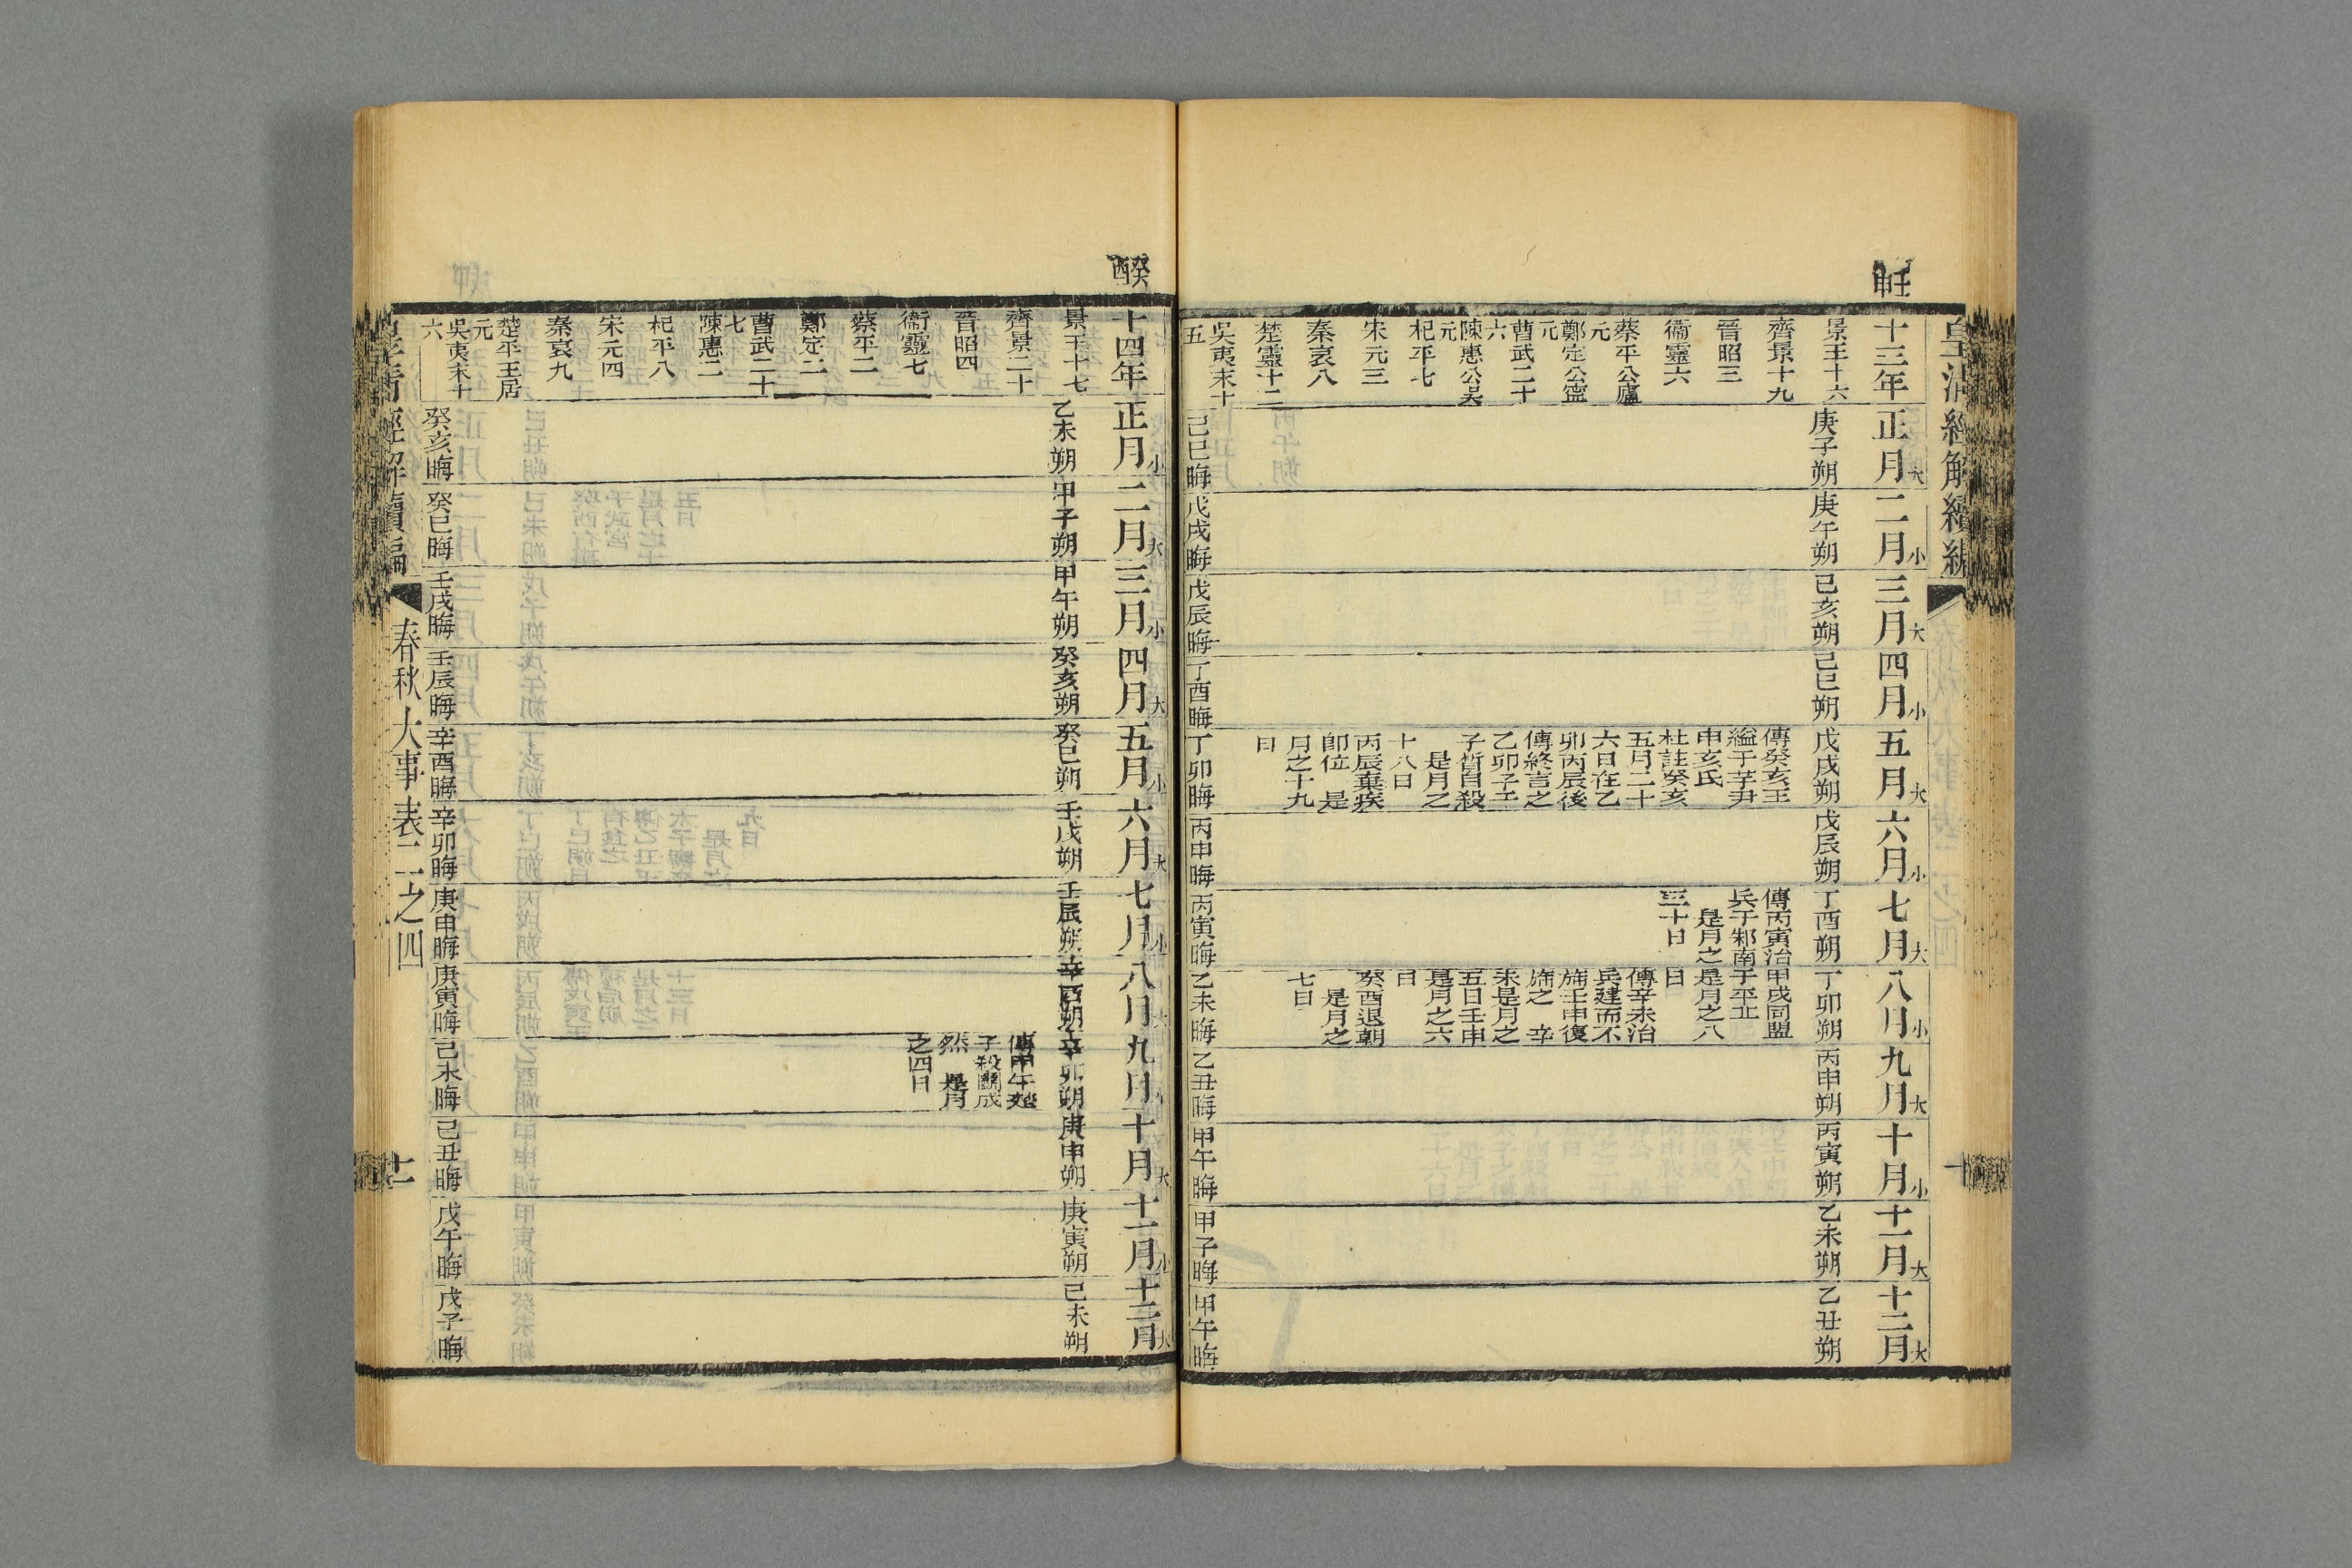 皇清經解續編
壬申
十三年
景王十六
齊景十九
晉昭三
衞靈六
蔡平公廬
元
鄭定公寧
元
曹武二十
六
陳惠公吳
元
杞平七
宋元三
秦哀八
楚靈十二
吳夷末十
五
正月大
庚子朔
己巳晦
二月小
庚午朔
戊戌晦
三月大
己亥朔
戊辰晦
四月小
己巳朔
丁酉晦
五月大
戊戌朔
傳癸亥王
縊于芋尹
申亥氏
杜註癸亥
五月二十
六日在乙
卯丙辰後
傳終言之
乙卯子干
子晳自殺
是月之
十八日
丙辰棄疾
卽位 是
月之十九
日
丁卯晦
六月小
戊辰朔
丙申晦
七月大
丁酉朔
傳丙寅治
兵于邾南
是月之
三十日
丙寅晦
八月小
丁卯朔
甲戌同盟
于平丘
是月之八
日
傳辛未治
兵建而不
旆壬申復
旆之 辛
未是月之
五日壬申
是月之六
日
癸酉退朝
是月之
七日
乙未晦
九月大
丙申朔
乙丑晦
十月小
丙寅朔
甲午晦
十一月大
乙未朔
甲子晦
十二月大
乙丑朔
甲午晦
癸酉
十四年
景王十七
齊景二十
晉昭四
衞靈七
蔡平二
鄭定二
曹武二十
七
陳惠二
杞平八
宋元四
秦哀九
楚平王居
元
吳夷末十
六
正月小
乙未朔
癸亥晦
二月大
甲子朔
癸巳晦
三月小
甲午朔
壬戌晦
四月大
癸亥朔
壬辰晦
五月小
癸巳朔
辛酉晦
六月大
壬戌朔
辛卯晦
七月小
壬辰朔
庚申晦
八月大
辛酉朔
庚寅晦
九月
辛卯朔
傳甲午楚
子殺鬭成
然 是月
之四日
己未晦
十月大
庚申朔
己丑晦
十一月小
庚寅朔
戊午晦
十二月大
己未朔
戊子晦
皇清經解續編
春秋大事表二之四
十一